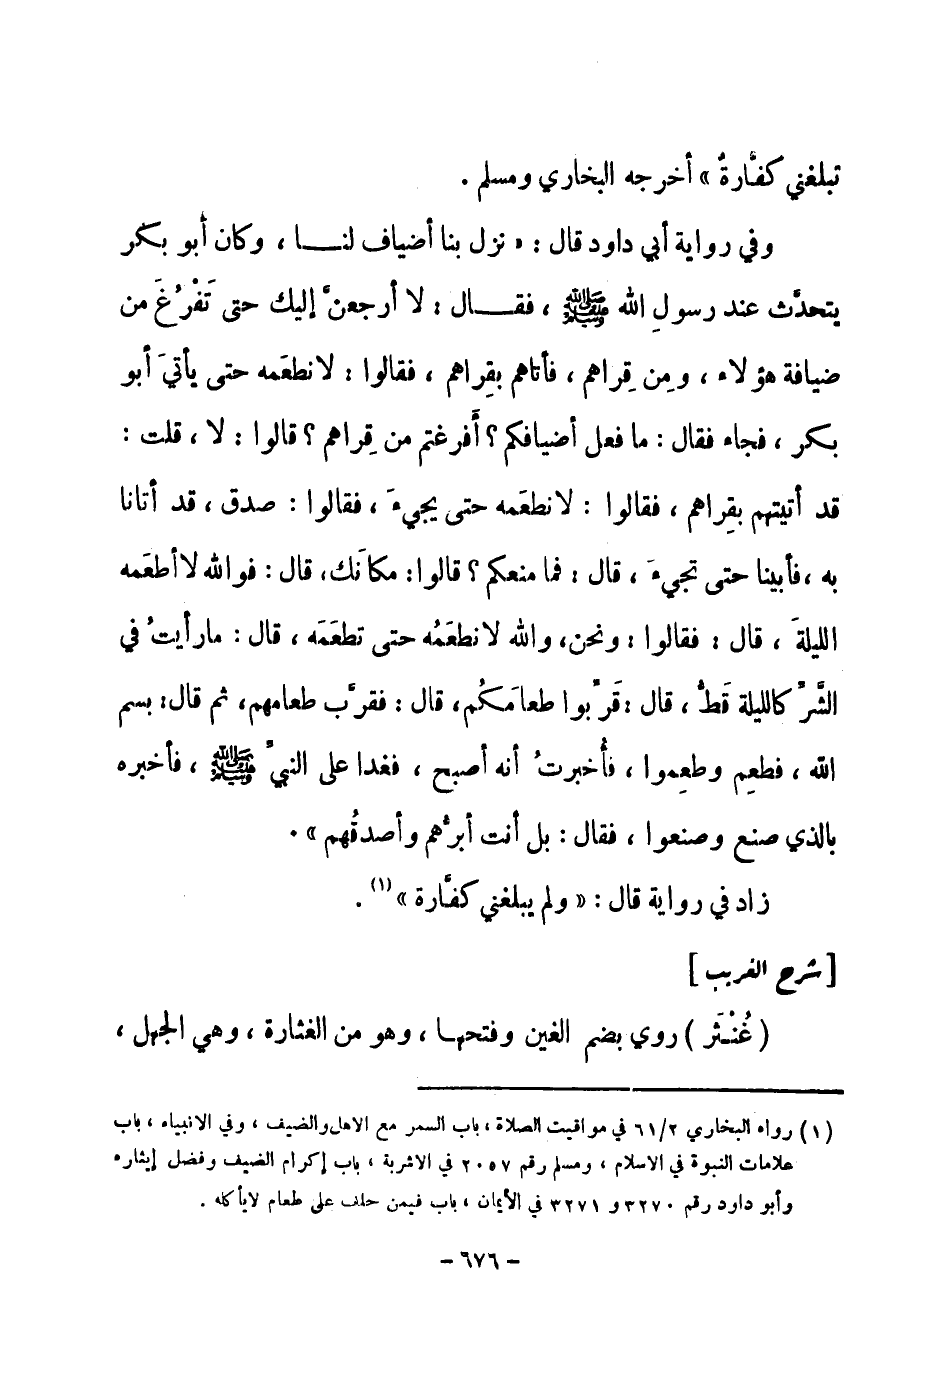 تبلغني كفَّارةٌ » أخرجه البخاري ومسلم .
وفي رواية أبي داود قال : « نزل بنا أضياف لنـــا ، وكان أبو بكر
يتحدَّث عند رسولِ الله ﷺ ، فقـــال : لا أرجعنَّ إليك حتى تَفْرُغَ من
ضيافة هؤلاء ، ومِن قِراهم ، فأتاهم بقِراهم ، فقالوا : لا نطعَمه حتى يأتيَ أبو
بكر ، فجاء فقال : ما فعل أضيافكم ؟ أَفرغتم من قِراهم ؟ قالوا : لا ، قلت :
قد أتيتهم بقِراهم ، فقالوا : لا نطعَمه حتى يجيءَ ، فقالوا : صدق ، قد أتانا
به ، فأبينا حتى تجيءَ ، قال : فما منعكم ؟ قالوا : مكانَك ، قال : فوالله لا أطعَمه
الليلةَ ، قال : فقالوا : ونحن ، والله لا نطعَمُه حتى تطعَمَه ، قال : ما رأيتُ في
الشَّرِّ كالليلة قَطُّ ، قال : قَرِّبوا طعامَكُم ، قال : فقرَّب طعامهم ، ثم قال : بسم
الله ، فطعِم وطعِموا ، فأُخبرتُ أنه أصبح ، فغدا على النبيِّ ﷺ ، فأخبره
بالذي صنع وصنعوا ، فقال : بل أنت أبرُّهم وأصدقُهم » .
زاد في رواية قال : « ولم يبلغني كفَّارة » (١) .
[شرح الغريب]
( غُنْثَر ) روي بضم الغين وفتحهـا ، وهو من الغثارة ، وهي الجهل ،
(١) رواه البخاري ٦١/٢ في مواقيت الصلاة ، باب السمر مع الاهل والضيف ، وفي الانبياء ، باب
علامات النبوة في الاسلام ، ومسلم رقم ٢٠٥٧ في الاشربة ، باب إكرام الضيف وفضل إيثاره
وأبو داود رقم ٣٢٧٠ و ٣٢٧١ في الأيمان ، باب فيمن حلف على طعام لا يأكله .
- ٦٧٦ -